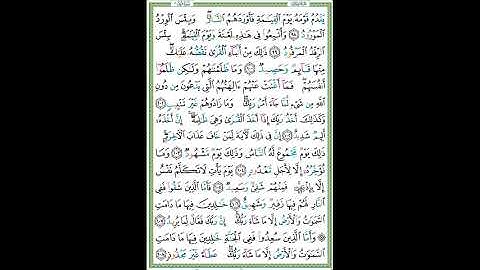 يَقْدُمُ قَوْمَهُۥ يَوْمَ ٱلْقِيَٰمَةِ فَأَوْرَدَهُمُ ٱلنَّارَ ۖ وَبِئْسَ ٱلْوِرْدُ
ٱلْمَوْرُودُ ٩٨ وَأُتْبِعُوا۟ فِى هَٰذِهِۦ لَعْنَةً وَيَوْمَ ٱلْقِيَٰمَةِ ۚ بِئْسَ
ٱلرِّفْدُ ٱلْمَرْفُودُ ٩٩ ذَٰلِكَ مِنْ أَنۢبَآءِ ٱلْقُرَىٰ نَقُصُّهُۥ عَلَيْكَ ۖ
مِنْهَا قَآئِمٌ وَحَصِيدٌ ١٠٠ وَمَا ظَلَمْنَٰهُمْ وَلَٰكِن ظَلَمُوٓا۟
أَنفُسَهُمْ ۖ فَمَآ أَغْنَتْ عَنْهُمْ ءَالِهَتُهُمُ ٱلَّتِى يَدْعُونَ مِن دُونِ
ٱللَّهِ مِن شَىْءٍ لَّمَّا جَآءَ أَمْرُ رَبِّكَ ۖ وَمَا زَادُوهُمْ غَيْرَ تَتْبِيبٍ ١٠١
وَكَذَٰلِكَ أَخْذُ رَبِّكَ إِذَآ أَخَذَ ٱلْقُرَىٰ وَهِىَ ظَٰلِمَةٌ ۚ إِنَّ أَخْذَهُۥٓ
أَلِيمٌ شَدِيدٌ ١٠٢ إِنَّ فِى ذَٰلِكَ لَءَايَةً لِّمَنْ خَافَ عَذَابَ ٱلْءَاخِرَةِ ۚ
ذَٰلِكَ يَوْمٌ مَّجْمُوعٌ لَّهُ ٱلنَّاسُ وَذَٰلِكَ يَوْمٌ مَّشْهُودٌ ١٠٣ وَمَا
نُؤَخِّرُهُۥٓ إِلَّا لِأَجَلٍ مَّعْدُودٍ ١٠٤ يَوْمَ يَأْتِ لَا تَكَلَّمُ نَفْسٌ
إِلَّا بِإِذْنِهِۦ ۚ فَمِنْهُمْ شَقِىٌّ وَسَعِيدٌ ١٠٥ فَأَمَّا ٱلَّذِينَ شَقُوا۟ فَفِى
ٱلنَّارِ لَهُمْ فِيهَا زَفِيرٌ وَشَهِيقٌ ١٠٦ خَٰلِدِينَ فِيهَا مَا دَامَتِ
ٱلسَّمَٰوَٰتُ وَٱلْأَرْضُ إِلَّا مَا شَآءَ رَبُّكَ ۚ إِنَّ رَبَّكَ فَعَّالٌ لِّمَا يُرِيدُ ١٠٧
۞ وَأَمَّا ٱلَّذِينَ سُعِدُوا۟ فَفِى ٱلْجَنَّةِ خَٰلِدِينَ فِيهَا مَا دَامَتِ
ٱلسَّمَٰوَٰتُ وَٱلْأَرْضُ إِلَّا مَا شَآءَ رَبُّكَ ۖ عَطَآءً غَيْرَ مَجْذُوذٍ ١٠٨